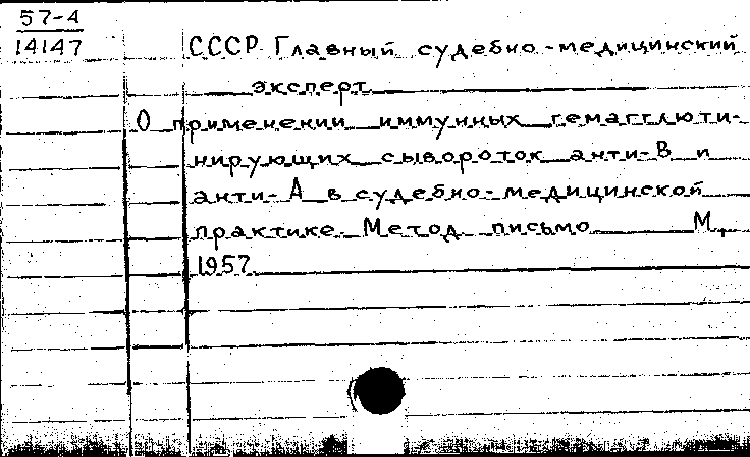 57-4
14147
СССР. Главный судебно-медицинский
эксперт
О применении иммунных гемагглюти-
нирующих сывороток анти-В и
анти-А в судебно-медицинской
практике. Метод. письмо М.,
1957